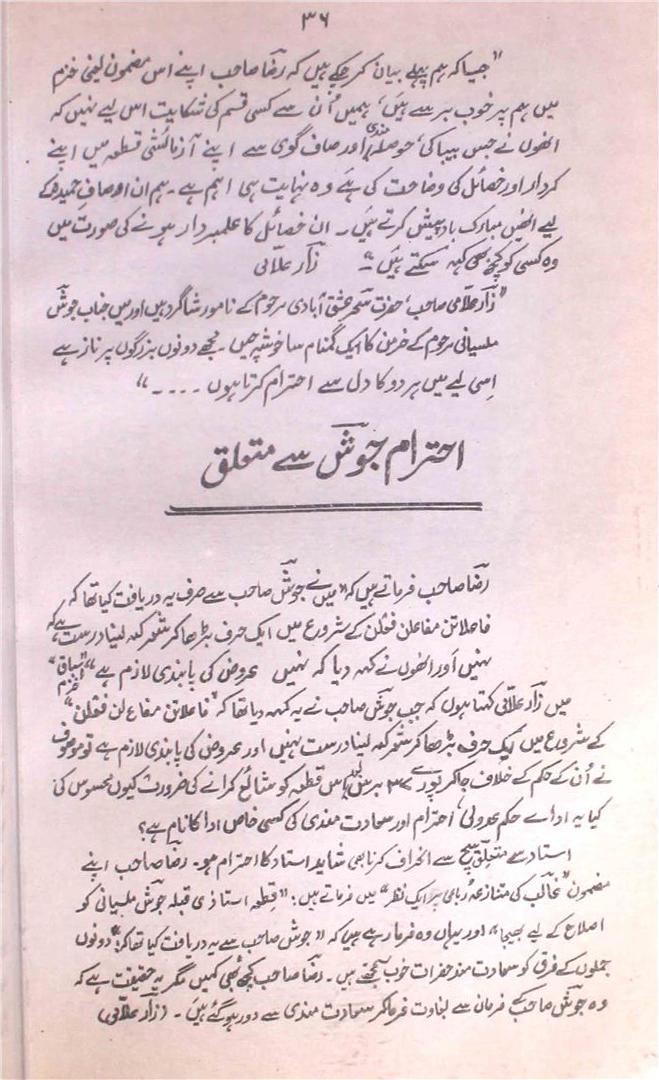 ۳۶
"جیسا کہ ہم پہلے بیان کر چکے ہیں کہ رضا صاحب اپنے اس مضمون یعنی خزم
میں ہم پر خوب برسے ہیں، ہمیں اُن سے کسی قسم کی شکایت اس لیے نہیں کہ
انھوں نے جس بیباکی، حوصلہ مندی اور صاف گوئی سے اپنے آزمائشی قطعہ میں اپنے
کردار اور خصائل کی وضاحت کی ہے وہ نہایت ہی اہم ہے۔ ہم ان اوصافِ حمیدہ کے
لیے انھیں مبارک باد پیش کرتے ہیں۔ ان خصائل کا علمبردار ہونے کی صورت میں
وہ کسی کو کچھ بھی کہہ سکتے ہیں"۔ زار علّامی
"زار علّامی صاحب، حضرت سحر عشق آبادی مرحوم کے نامور شاگرد ہیں اور میں جناب جوش
ملسیانی مرحوم کے خرمن کا ایک گمنام سا خوشہ چیں۔ مجھے دونوں بزرگوں پر ناز ہے
اِسی لیے میں ہر دو کا دل سے احترام کرتا ہوں ۔۔۔۔"
احترام جوش سے متعلق
رضا صاحب فرماتے ہیں کہ "میں نے جوش صاحب سے صرف یہ دریافت کیا تھا کہ
فاعلاتن مفاعلن فعلن کے شروع میں ایک حرف بڑھا کر شعر کہہ لینا درست ہے کہ
نہیں اور انھوں نے کہہ دیا کہ نہیں عروض کی پابندی لازم ہے" "سباق خزم"
میں زار علّامی کہتا ہوں کہ جب جوش صاحب نے یہ کہہ دیا تھا کہ "فاعلاتن مفاع لن فعلن"
کے شروع میں ایک حرف بڑھا کر شعر کہہ لینا درست نہیں اور عروض کی پابندی لازم ہے تو موصوف
نے اُن کے حکم کے خلاف جا کر پورے ۳۲ برس بعد اِس قطعہ کو شائع کرانے کی ضرورت کیوں محسوس کی
کیا یہ اداے حکم عدولی، احترام اور سعادت مندی کی کسی خاص ادا کا نام ہے؟
استاد سے متعلق سچ سے انحراف کرنا بھی شاید استاد کا احترام ہو۔ رضا صاحب اپنے
مضمون "غالب کی متنازعہ رباعی پر ایک نظر" میں فرماتے ہیں: "قطعہ استاذی قبلہ جوش ملسیانی کو
اصلاح کے لیے بھیجا" اور یہاں وہ فرما رہے ہیں کہ "جوش صاحب سے یہ دریافت کیا تھا کہ" دونوں
جملوں کے فرق کو سعادت مند حضرات خوب سمجھتے ہیں۔ رضا صاحب کچھ بھی کہیں مگر یہ حقیقت ہے کہ
وہ جوش صاحب کے فرمان سے بغاوت فرما کر سعادت مندی سے دور ہو گئے ہیں۔ (زار علّامی)